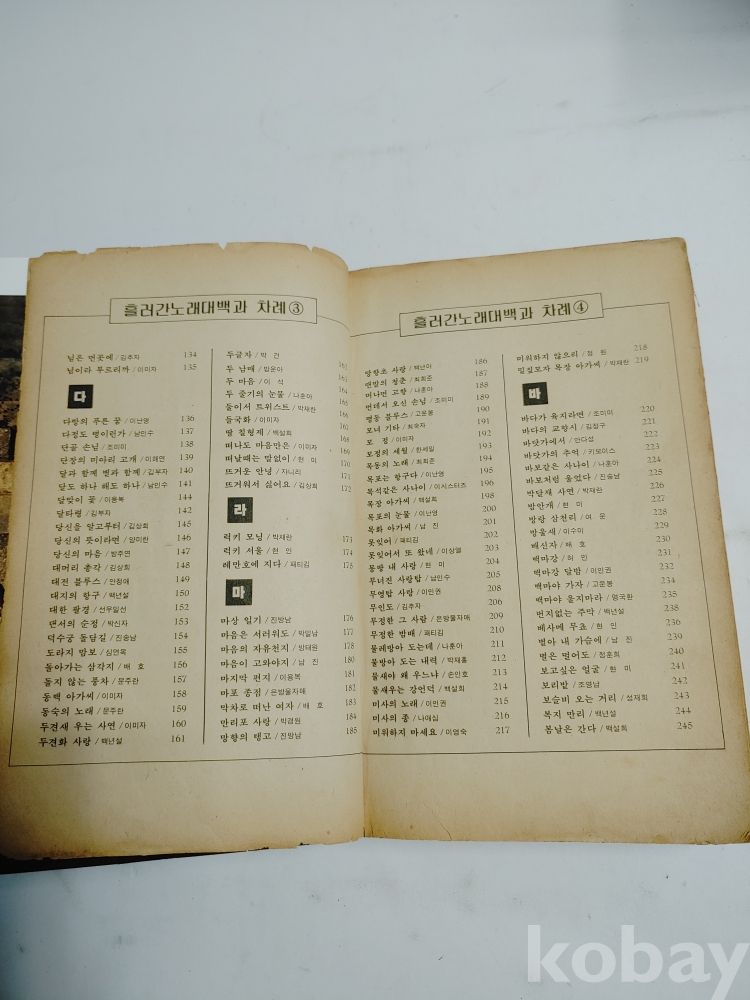 흘러간노래대백과 차례③
님은 먼곳에/김추자 134
님이라 부르리까/이미자 135
다
다방의 푸른 꿈/이난영 136
다정도 병이런가/남인수 137
단골 손님/조미미 138
단장의 미아리 고개/이해연 139
달과 함께 별과 함께/김부자 140
달도 하나 해도 하나/남인수 141
달맞이 꽃/이용복 144
달타령/김부자 142
당신을 알고부터/김상희 145
당신의 뜻이라면/양미란 146
당신의 마음/방주연 147
대머리 총각/김상희 148
대전 블루스/안정애 149
대지의 항구/백년설 150
대한 팔경/선우일선 152
댄서의 순정/박신자 153
덕수궁 돌담길/진송남 154
도라지 맘보/심연옥 155
돌아가는 삼각지/배 호 156
돌지 않는 풍차/문주란 157
동백 아가씨/이미자 158
동숙의 노래/문주란 159
두견새 우는 사연/이미자 160
두견화 사랑/백년설 161
두글자/박 건
두 남매/방운아 163
두 마음/이 석
두 줄기의 눈물/나훈아 164
둘이서 트위스트/박재란 165
들국화/이미자 166
딸 칠형제/백설희 168
떠나도 마음만은/이미자 169
떠날때는 말없이/현 미 170
뜨거운 안녕/쟈니리 171
뜨거워서 싫어요/김상희 172
라
럭키 모닝/박재란 173
럭키 서울/현 인 174
레만호에 지다/패티김 175
마
마상 일기/진방남 176
마음은 서러워도/박일남 177
마음의 자유천지/방태원 178
마음이 고와야지/남 진 180
마지막 편지/이용복 181
마포 종점/은방울자매 182
막차로 떠난 여자/배 호 183
만리포 사랑/박경원 184
망향의 탱고/진방남 185
흘러간노래대백과 차례④
망향초 사랑/백난아 186
맨발의 청춘/최희준 187
머나먼 고향/나훈아 188
먼데서 오신 손님/조미미 189
명동 블루스/고운봉 190
모녀 기타/최숙자 191
모 정/이미자 192
모정의 세월/한세일 193
목동의 노래/최희준 194
목포는 항구다/이난영 195
목석같은 사나이/이시스터즈 196
목장 아가씨/백설희 198
목포의 눈물/이난영 200
목화 아가씨/남 진 201
못잊어/패티김 202
못잊어서 또 왔네/이상열 203
몽땅 내 사랑/현 미 204
무너진 사랑탑/남인수 205
무영탑 사랑/이인권 208
무인도/김추자 206
무정한 그 사람/은방울자매 209
무정한 밤배/패티김 210
물레방아 도는데/나훈아 211
물방아 도는 내력/박재홍 212
물새야 왜 우느냐/손인호 213
물새우는 강언덕/백설희 214
미사의 노래/이인권 215
미사의 종/나애심 216
미워하지 마세요/이영숙 217
미워하지 않으리/정 원 218
밀짚모자 목장 아가씨/박재란 219
바
바다가 육지라면/조미미 220
바다의 교향시/김정구 221
바닷가에서/안다성 222
바닷가의 추억/키보이스 223
바보같은 사나이/나훈아 224
바보처럼 울었다/진송남 225
박달재 사연/박재란 226
밤안개/현 미 227
방랑 삼천리/여 운 228
방울새/이수미 229
배신자/배 호 230
백마강/허 민 231
백마강 달밤/이인권 232
백마야 가자/고운봉 234
백마야 울지마라/명국환 235
번지없는 주막/백년설 238
베사메 무쵸/현 인 236
별아 내 가슴에/남 진 239
별은 멀어도/정훈희 240
보고싶은 얼굴/현 미 241
보리밭/조영남 242
보슬비 오는 거리/성재희 243
복지 만리/백년설 244
봄날은 간다/백설희 245
kobay